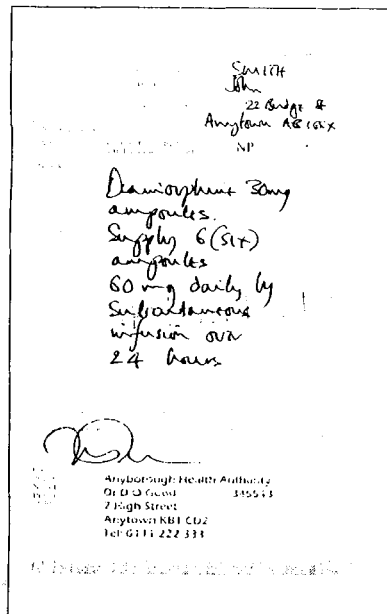 SMITH
John
22 Bridge St
Anytown AB1 6IX
NP
Diamorphine 30mg
ampoules.
Supply 6 (six)
ampoules
60 mg daily by
Subcutaneous
infusion over
24 hours
Anyborough Health Authority
Dr D O Good 345543
7 High Street
Anytown KB1 CD2
Tel: 0111 222 333